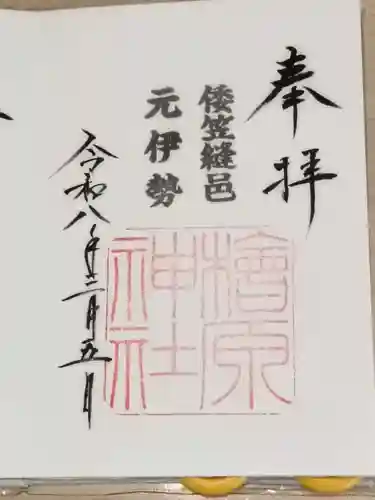 奉拝
倭笠縫邑
元伊勢
檜原
神社
令和八年三月五日